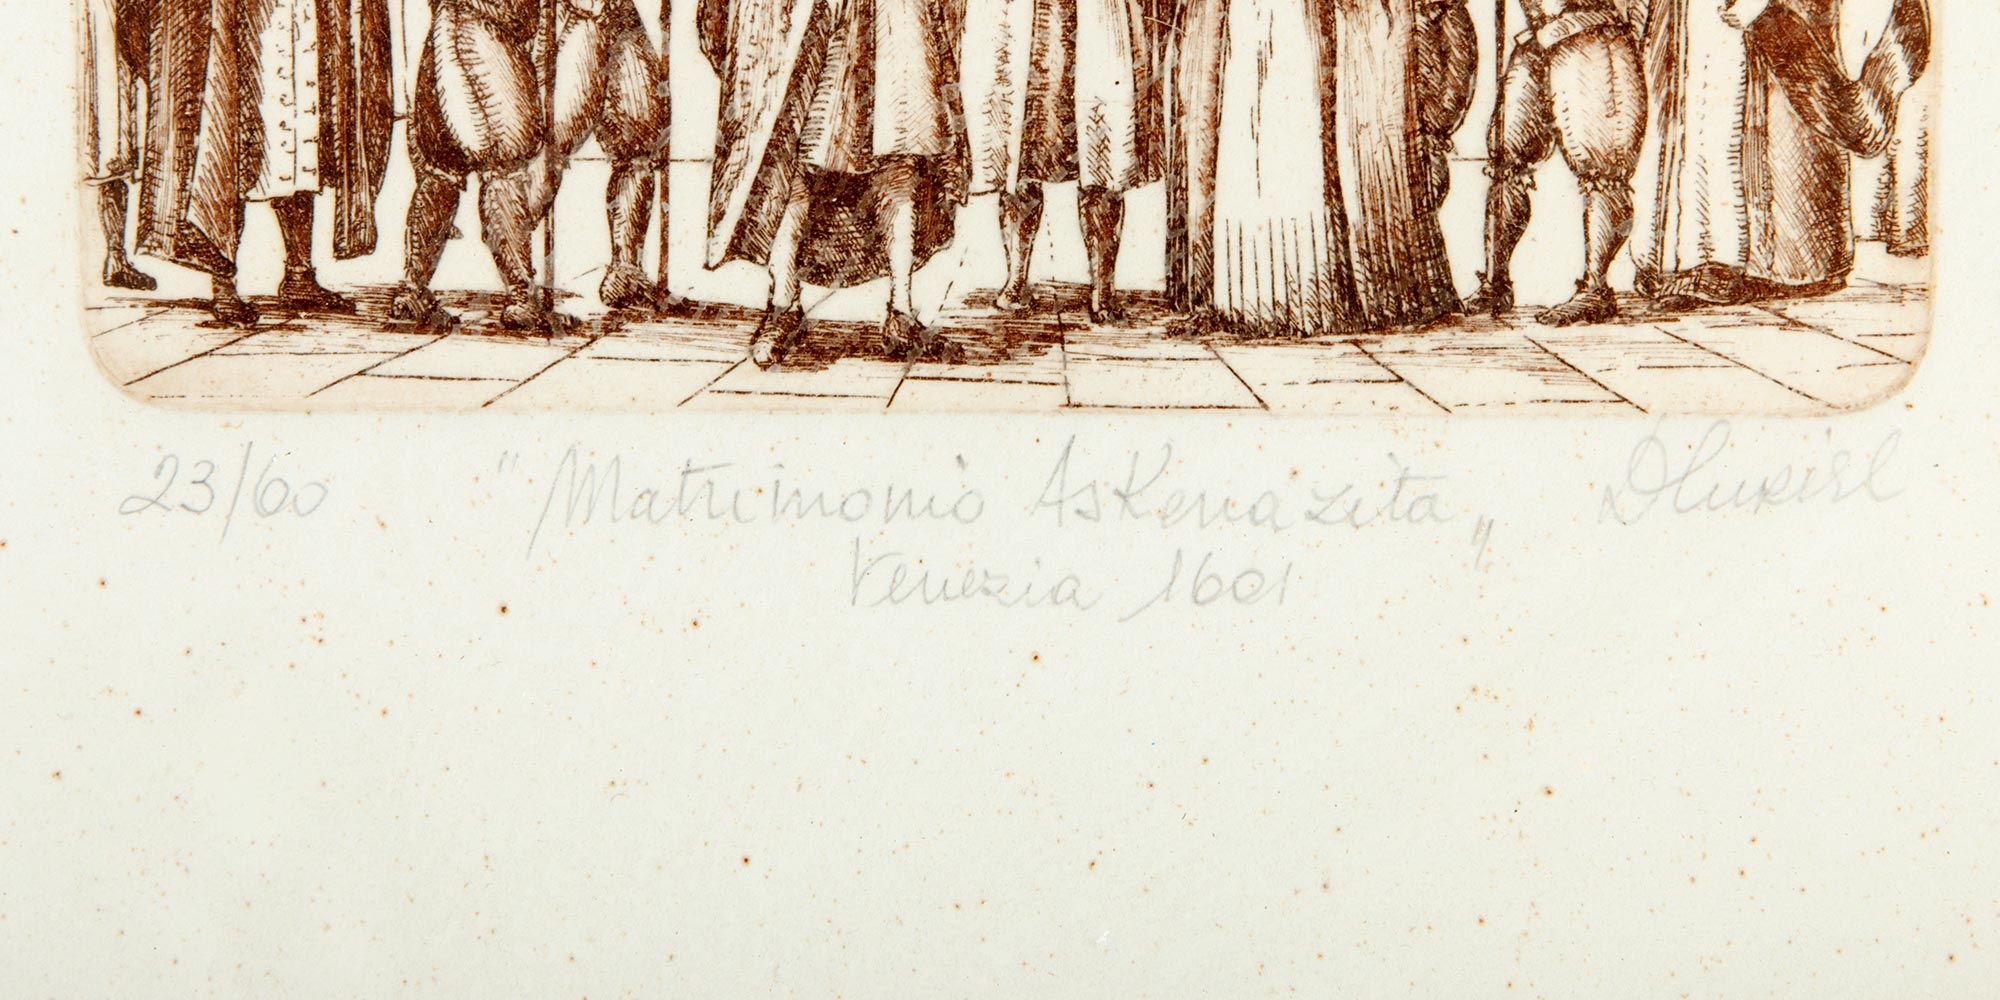 23/60 "Matrimonio AsKenazita"
Venezia 1601